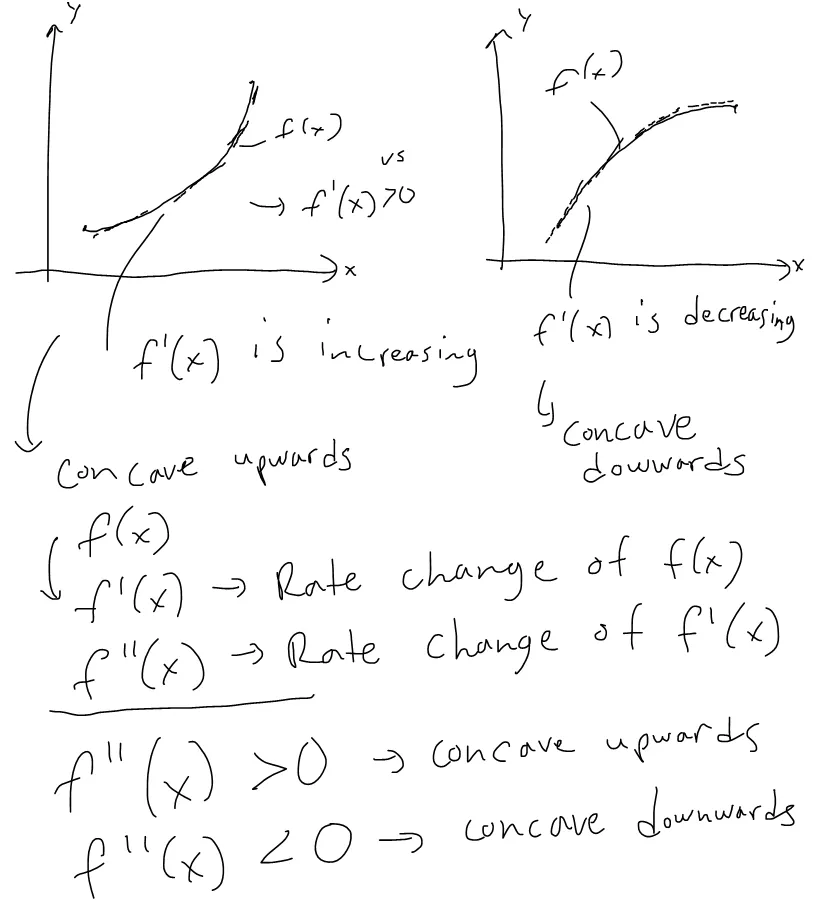 y
f(x)
vs
→ f'(x) >0
x
f'(x) is increasing
concave upwards
y
f(x)
x
f'(x) is decreasing
↳ concave
dowwards
f(x)
f'(x) → Rate change of f(x)
f''(x) → Rate change of f'(x)
f''(x) >0 → concave upwards
f''(x) <0 → concave downwards